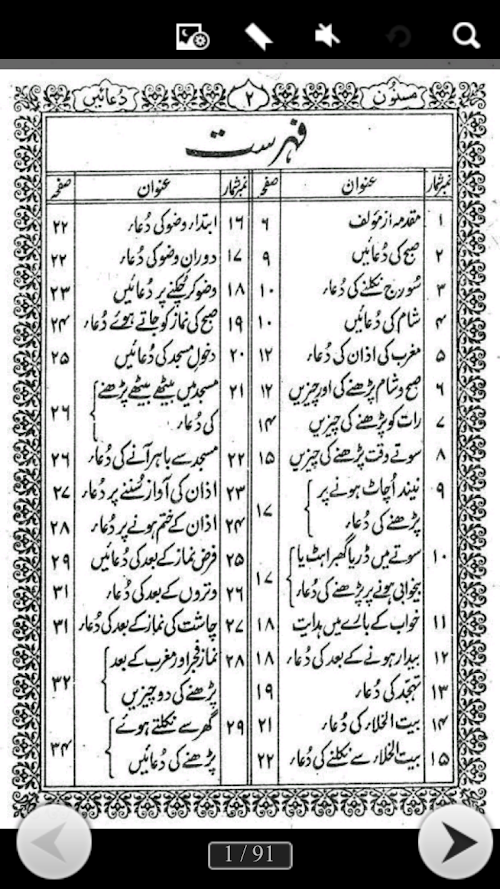 مسنون ۲ دُعائیں
فہرست
نمبر شمار عنوان صفحہ
۱ مقدمہ از مؤلف ۶
۲ صبح کی دُعائیں ۹
۳ سُورج نکلنے کی دُعاء ۱۰
۴ شام کی دُعائیں ۱۰
۵ مغرب کی اذان کی دُعاء ۱۲
۶ صبح و شام پڑھنے کی اور چیزیں ۱۲
۷ رات کو پڑھنے کی چیزیں ۱۴
۸ سوتے وقت پڑھنے کی چیزیں ۱۵
۹ نیند اُچاٹ ہونے پر
پڑھنے کی دُعاء ۱۷
۱۰ سوتے میں ڈر یا گھبراہٹ یا
بیخوابی ہونے پر پڑھنے کی دُعاء ۱۷
۱۱ خواب کے بارے میں ہدایت ۱۸
۱۲ بیدار ہونے کے بعد کی دُعاء ۱۸
۱۳ تہجد کی دُعاء ۱۹
۱۴ بیت الخلاء کی دُعاء ۲۱
۱۵ بیت الخلاء سے نکلنے کی دُعاء ۲۲
نمبر شمار عنوان صفحہ
۱۶ ابتداء وضو کی دُعاء ۲۲
۱۷ دورانِ وضو کی دُعاء ۲۲
۱۸ وضو کر چُکنے پر دُعائیں ۲۳
۱۹ صبح کی نماز کو جاتے ہوئے دُعاء ۲۴
۲۰ دخولِ مسجد کی دُعائیں ۲۵
۲۱ مسجد میں بیٹھے بیٹھے پڑھنے
کی دُعاء ۲۶
۲۲ مسجد سے باہر آنے کی دُعاء ۲۶
۲۳ اذان کی آواز سُننے پر دُعاء ۲۷
۲۴ اذان کے ختم ہونے پر دُعاء ۲۸
۲۵ فرض نماز کے بعد کی دُعائیں ۲۹
۲۶ وتروں کے بعد کی دُعاء ۳۱
۲۷ چاشت کی نماز کے بعد کی دُعاء ۳۱
۲۸ نمازِ فجر اور مغرب کے بعد
پڑھنے کی دو چیزیں ۳۲
۲۹ گھر سے نکلتے ہوئے
پڑھنے کی دُعائیں ۳۴
1 / 91